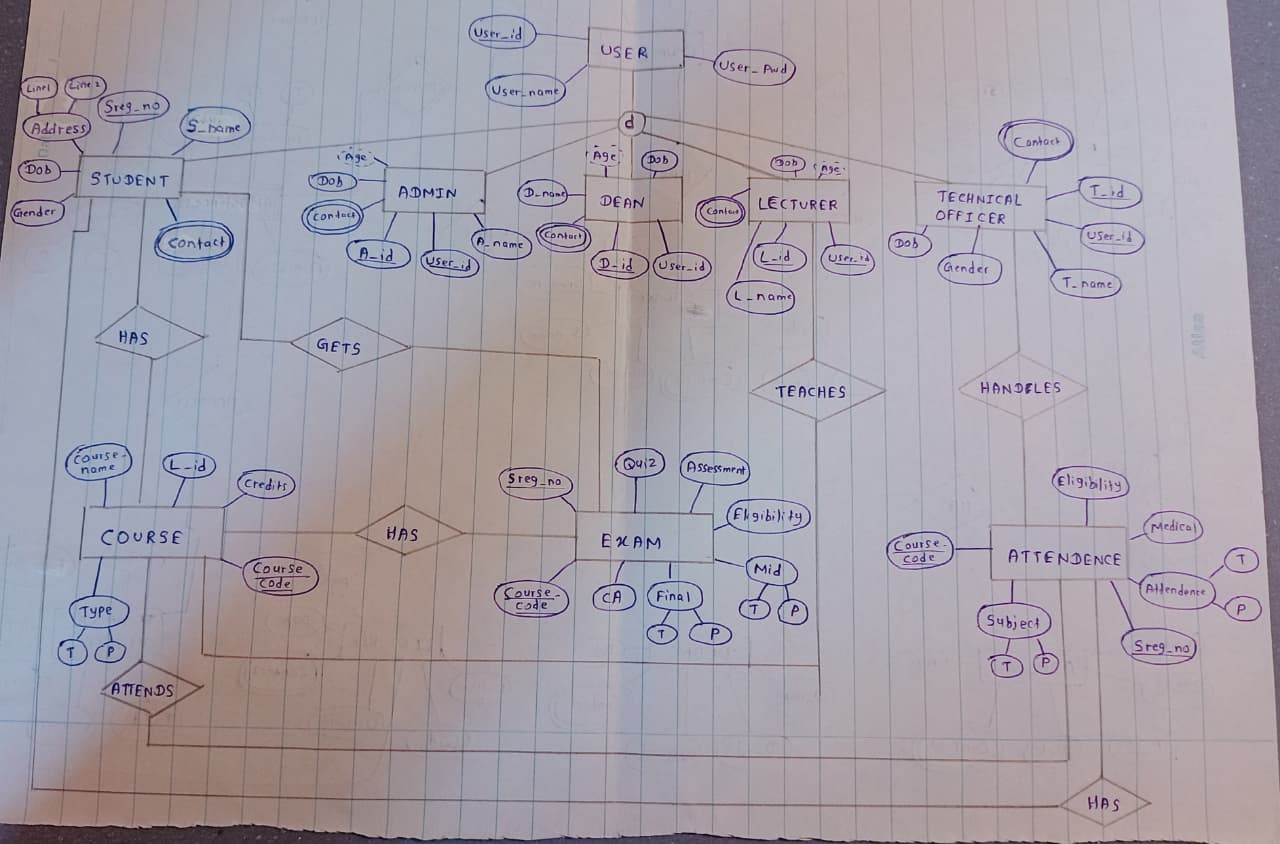 User_id
USER
User_Pwd
User_name
d
Line1
Line2
Sreg_no
S_name
Address
Dob
STUDENT
Gender
Contact
Age
Dob
ADMIN
Contact
A_id
User_id
A_name
Age
Dob
D_name
DEAN
Contact
D_id
User_id
Dob
Age
LECTURER
Contact
L_id
User_id
L_name
Contact
TECHNICAL
OFFICER
T_id
User_id
Dob
Gender
T_name
HAS
GETS
TEACHES
HANDELES
Course-
name
L_id
Credits
COURSE
Course
Code
Type
T
P
ATTENDS
HAS
Sreg_no
Quiz
Assessment
Eligibility
EXAM
Course-
code
CA
Final
T
P
Mid
T
P
Eligibility
Medical
Course-
code
ATTENDENCE
Attendence
T
P
Subject
T
P
Sreg_no
HAS